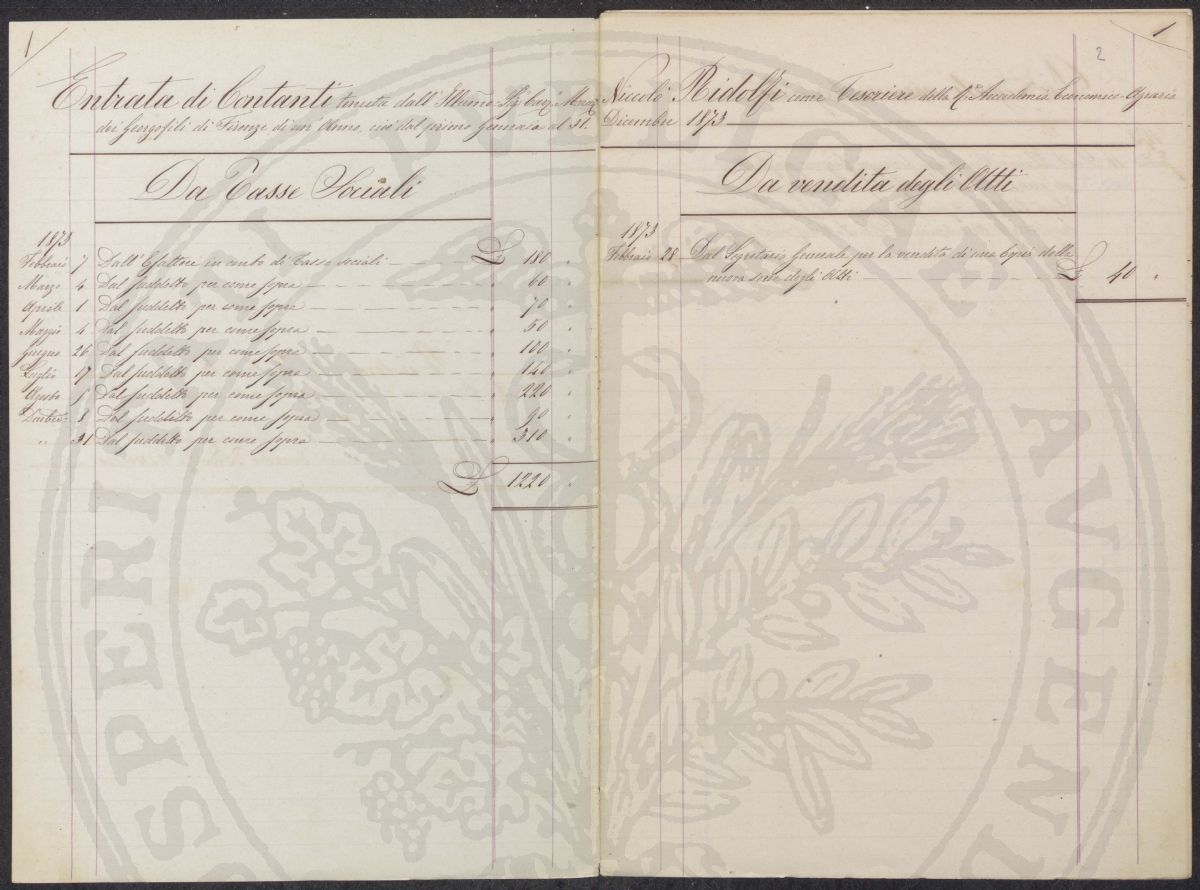 1
Entrata di Contanti tenuta dall' Illumo Sig. Cav. March.
dei Georgofili di Firenze di un' Anno, cioè dal primo Gennaio al 31.
Da Tasse Sociali
1873
Febbraio 7 Dall' Esattore in conto di Tasse sociali — £ 180 "
Marzo 4 Dal suddetto per come sopra — " 60 "
Aprile 1 Dal suddetto per come sopra — " 70 "
Maggio 4 Dal suddetto per come sopra — " 50 "
Giugno 26 Dal suddetto per come sopra — " 100 "
Luglio 17 Dal suddetto per come sopra — " 140 "
Agosto Dal suddetto per come sopra — " 220 "
8 Dal suddetto per come sopra — " 90 "
" 31 Dal suddetto per come sopra — " 310 "
£ 1220 "
1
2
Niccolò Ridolfi come Tesoriere della Rª Accademia Economico-Agraria
Dicembre 1873
Da vendita degli Atti
1873
Febbraio 28 Dal Segretario Generale per la vendita di una Copia della
nuova serie degli Atti £ 40 "
PVBLICAE
AVGEND
PROSPERITATI